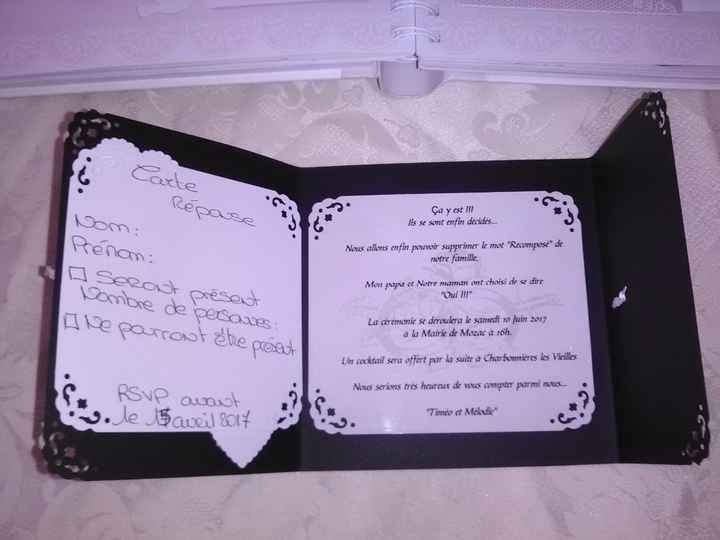 Carte
Réponse
Nom:
Prénom:
Seront présent
Nombre de personnes:
Ne pourront être présent
RSVP avant
le 15 avril 2017
Ça y est !!!
Ils se sont enfin décidés...
Nous allons enfin pouvoir supprimer le mot "Recomposé" de
notre famille.
Mon papa et Notre maman ont choisi de se dire
"Oui !!!"
La cérémonie se déroulera le samedi 10 Juin 2017
à la Mairie de Mozac à 16h.
Un cocktail sera offert par la suite à Charbonnières les Vieilles
Nous serions très heureux de vous compter parmi nous...
"Timéo et Mélodie"